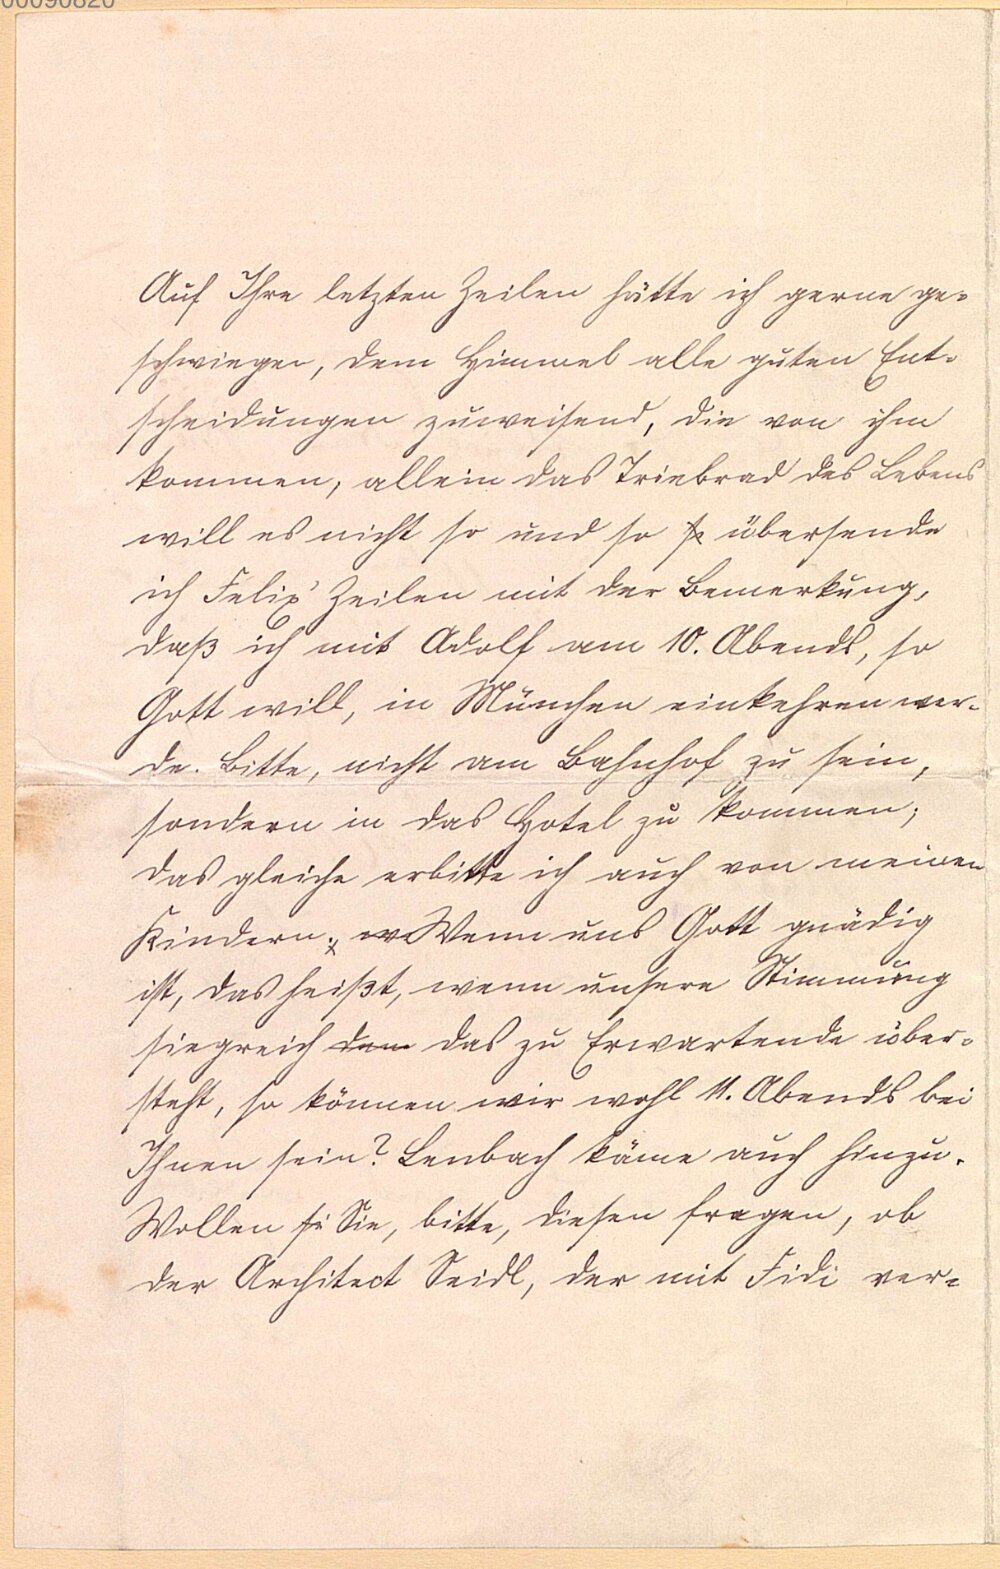 00090820
Auf Ihre letzten Zeilen hätte ich gerne ge-
schwiegen, dem Himmel alle guten Ent-
scheidungen zuweisend, die von ihm
kommen, allein das Triebrad des Lebens
will es nicht so und so übersende
ich Felix' Zeilen mit der Bemerkung,
daß ich mit Adolf am 10. Abends, so
Gott will, in München einkehren wer-
de. Bitte, nicht am Bahnhof zu sein,
sondern in das Hotel zu kommen;
das gleiche erbitte ich auch von meinen
Kindern. Wenn uns Gott gnädig
ist, das heißt, wenn unsere Stimmung
siegreich dem das zu Erwartende über-
steht, so können wir wohl 11. Abends bei
Ihnen sein? Lenbach käme auch hinzu.
Wollen Sie, bitte, diesen fragen, ob
der Architect Seidl, der mit Fidi ver-